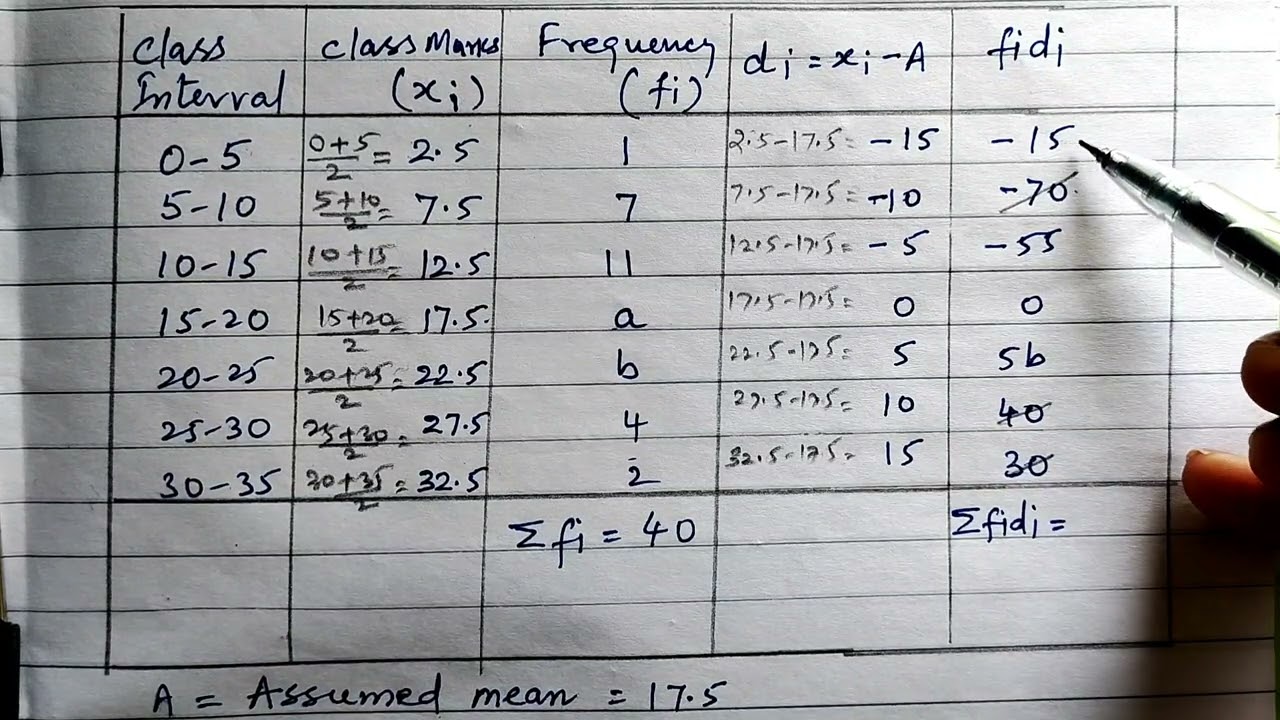 Class Interval | Class Marks (xi) | Frequency (fi) | di = xi - A | fidi
0-5 | 0+5/2 = 2.5 | 1 | 2.5-17.5 = -15 | -15
5-10 | 5+10/2 = 7.5 | 7 | 7.5-17.5 = -10 | -70
10-15 | 10+15/2 = 12.5 | 11 | 12.5-17.5 = -5 | -55
15-20 | 15+20/2 = 17.5 | a | 17.5-17.5 = 0 | 0
20-25 | 20+25/2 = 22.5 | b | 22.5-17.5 = 5 | 5b
25-30 | 25+30/2 = 27.5 | 4 | 27.5-17.5 = 10 | 40
30-35 | 30+35/2 = 32.5 | 2 | 32.5-17.5 = 15 | 30
Σfi = 40 | Σfidi =
A = Assumed mean = 17.5